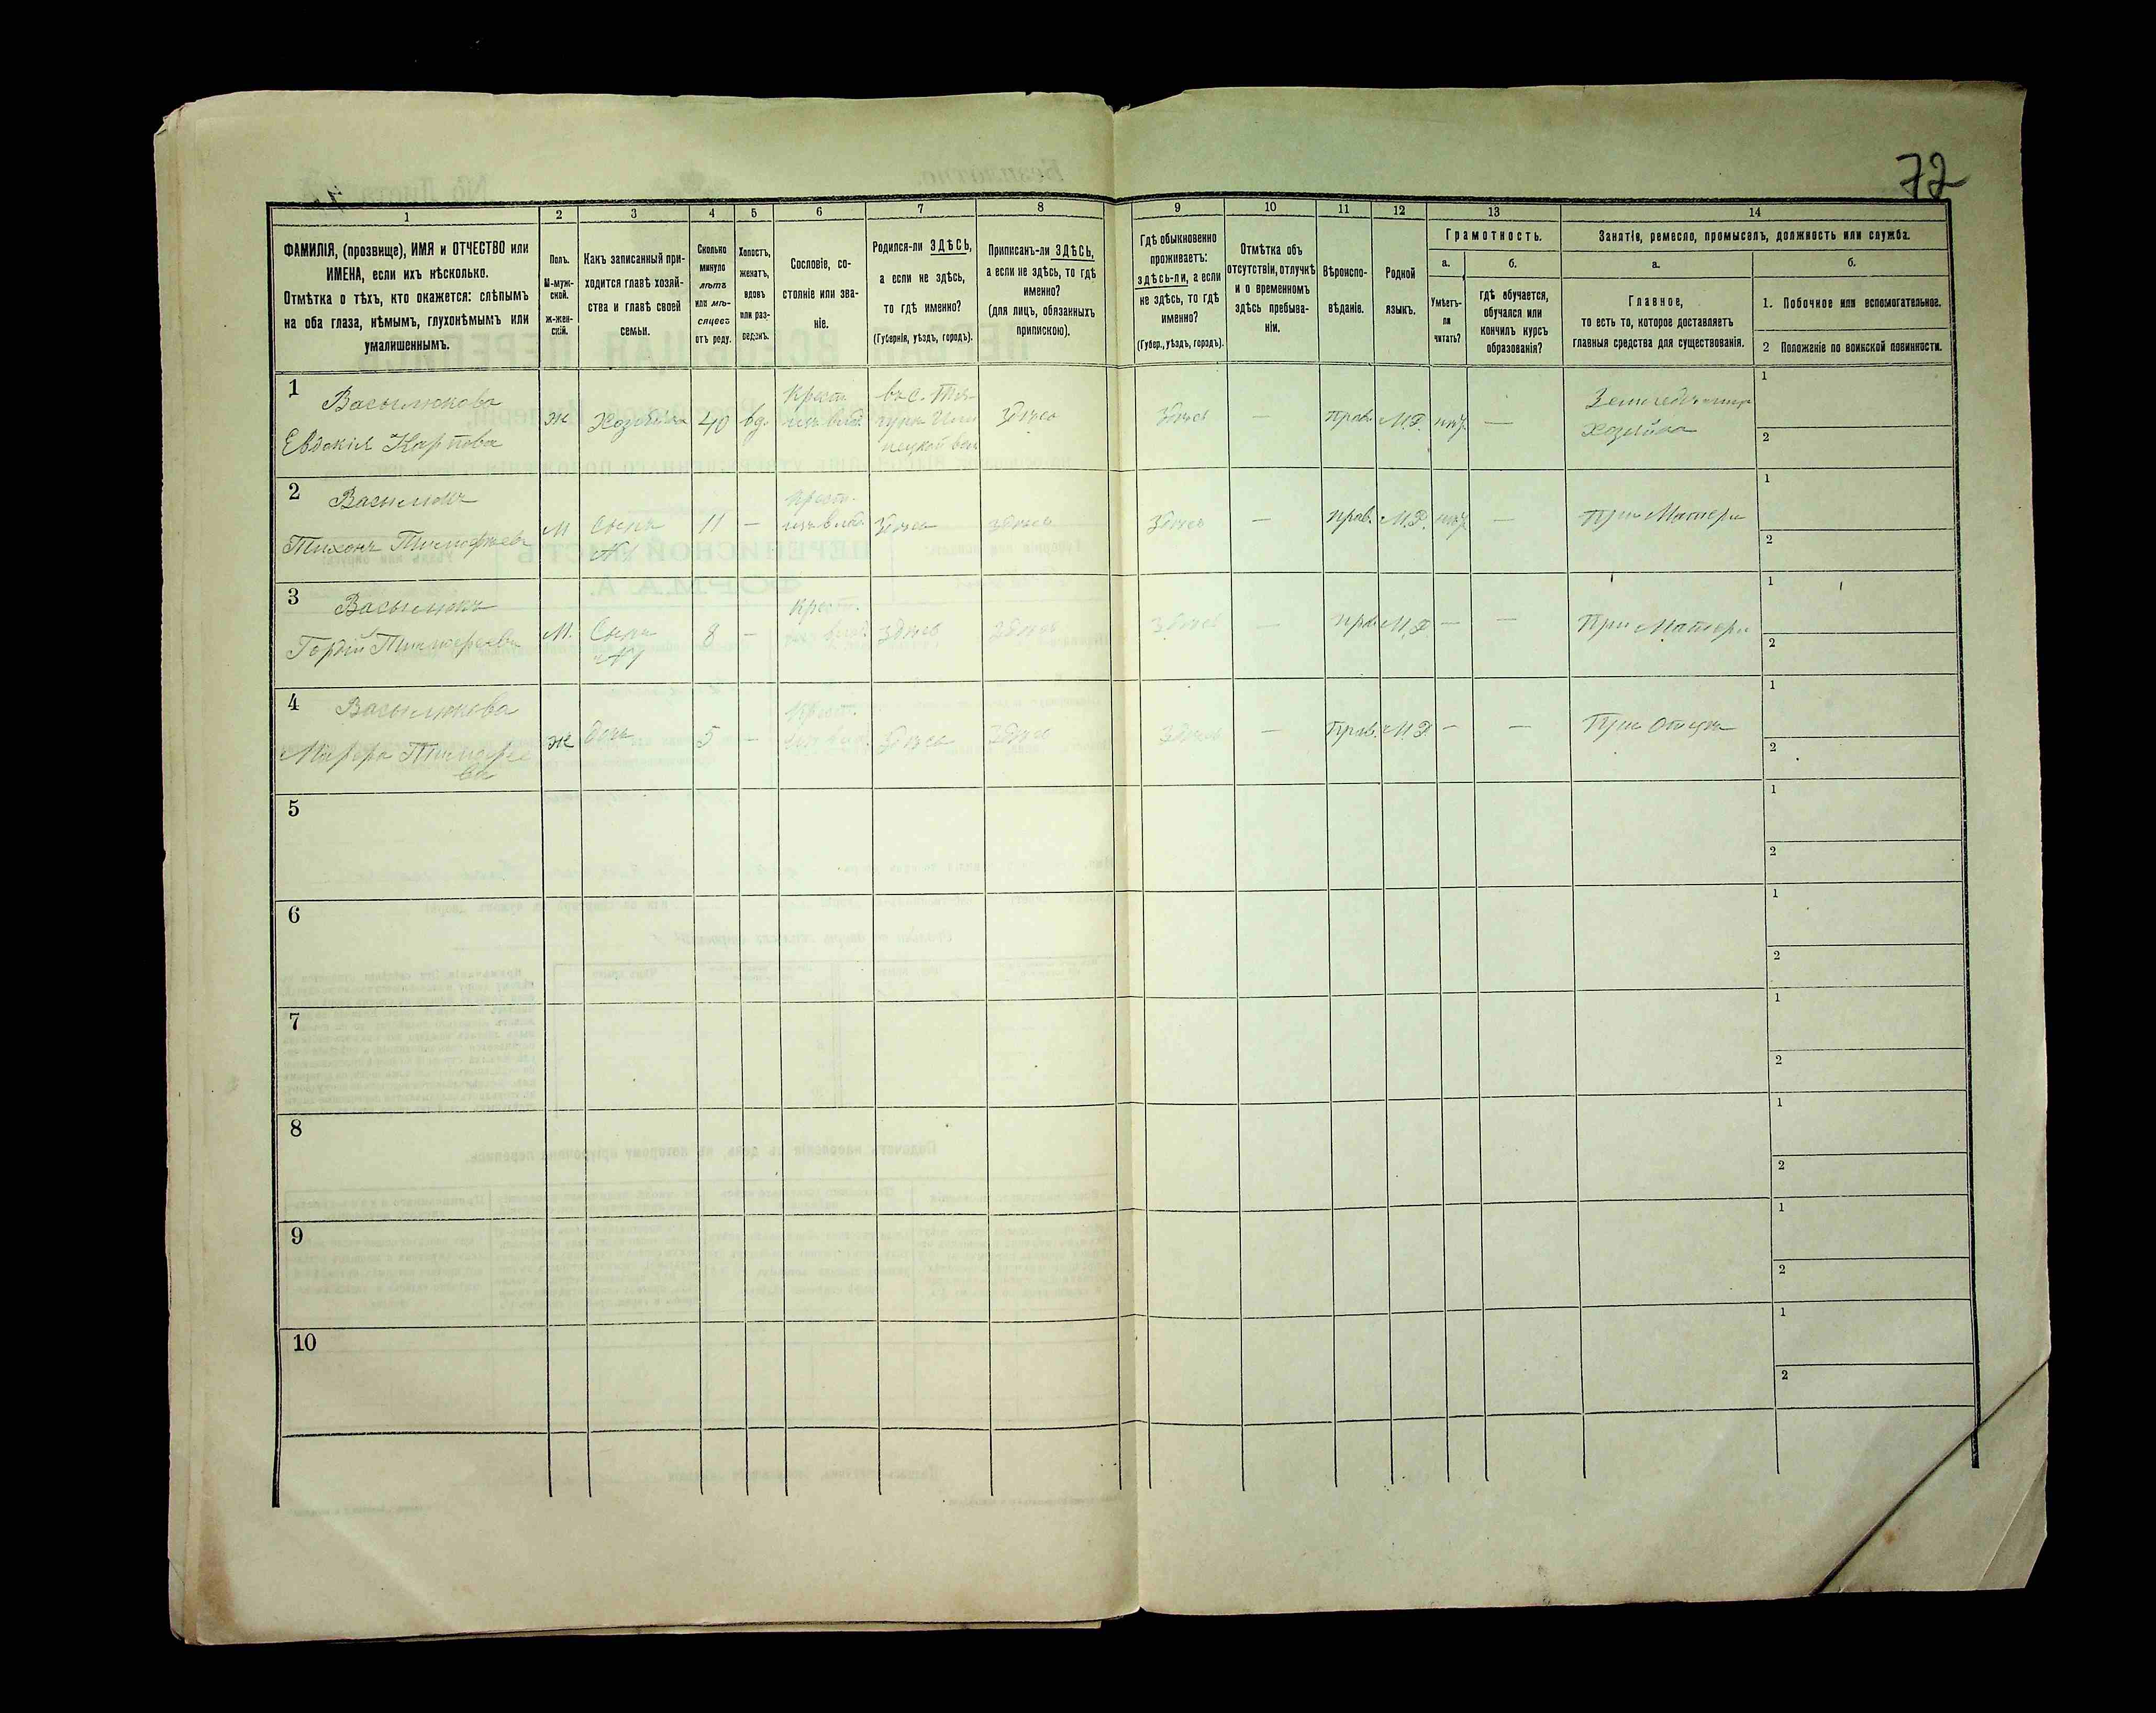 72
1
2
3
4
5
6
7
8
9
10
11
12
13
14
ФАМИЛІЯ, (прозвище), ИМЯ и ОТЧЕСТВО или
ИМЕНА, если ихъ нѣсколько.
Отмѣтка о тѣхъ, кто окажется: слѣпымъ
на оба глаза, нѣмымъ, глухонѣмымъ или
умалишеннымъ.
Полъ.
М-муж-
ской.
ж-жен-
скій.
Какъ записанный при-
ходится главѣ хозяй-
ства и главѣ своей
семьи.
Сколько
минуло
лѣтъ
или мѣ-
сяцевъ
отъ роду.
Холостъ,
женатъ,
вдовъ
или раз-
веденъ.
Сословіе, со-
стояніе или зва-
ніе.
Родился-ли ЗДѢСЬ,
а если не здѣсь,
то гдѣ именно?
(Губернія, уѣздъ, городъ).
Приписанъ-ли ЗДѢСЬ,
а если не здѣсь, то гдѣ
именно?
(для лицъ, обязанныхъ
припискою).
Гдѣ обыкновенно
проживаетъ:
здѣсь-ли, а если
не здѣсь, то гдѣ
именно?
(Губер., уѣздъ, городъ).
Отмѣтка объ
отсутствіи, отлучкѣ
и о временномъ
здѣсь пребыва-
ніи.
Вѣроиспо-
вѣданіе.
Родной
языкъ.
Грамотность.
а.
б.
Умѣетъ-
ли
читать?
гдѣ обучается,
обучался или
кончилъ курсъ
образованія?
Занятіе, ремесло, промыселъ, должность или служба.
а.
б.
Главное,
то есть то, которое доставляетъ
главныя средства для существованія.
1. Побочное или вспомогательное.
2 Положеніе по воинской повинности.
1
Васылюкова
Евдокія Карпова
ж
Хозяйка
40
вд.
Крест.
въ с.
здѣсь
здѣсь
—
прав.
М.Р.
—
Хозяйка
1
2
2
Васылюкъ
Тихонъ Тимофѣевъ
М
Сынъ
11
—
Крест.
здѣсь
здѣсь
здѣсь
—
прав.
М.Р.
—
При Матери
1
2
3
Васылюкъ
Гордій Тимофеевъ
М.
Сынъ
8
—
Крест.
здѣсь
здѣсь
здѣсь
прав.
М.Р.
—
—
При Матери
1
2
4
Васылюкова
ж
дочь
5
—
Крест.
здѣсь
здѣсь
здѣсь
—
Прав.
М.Р.
—
—
При Отцѣ
1
2
5
1
2
6
1
2
7
1
2
8
1
2
9
1
2
10
1
2